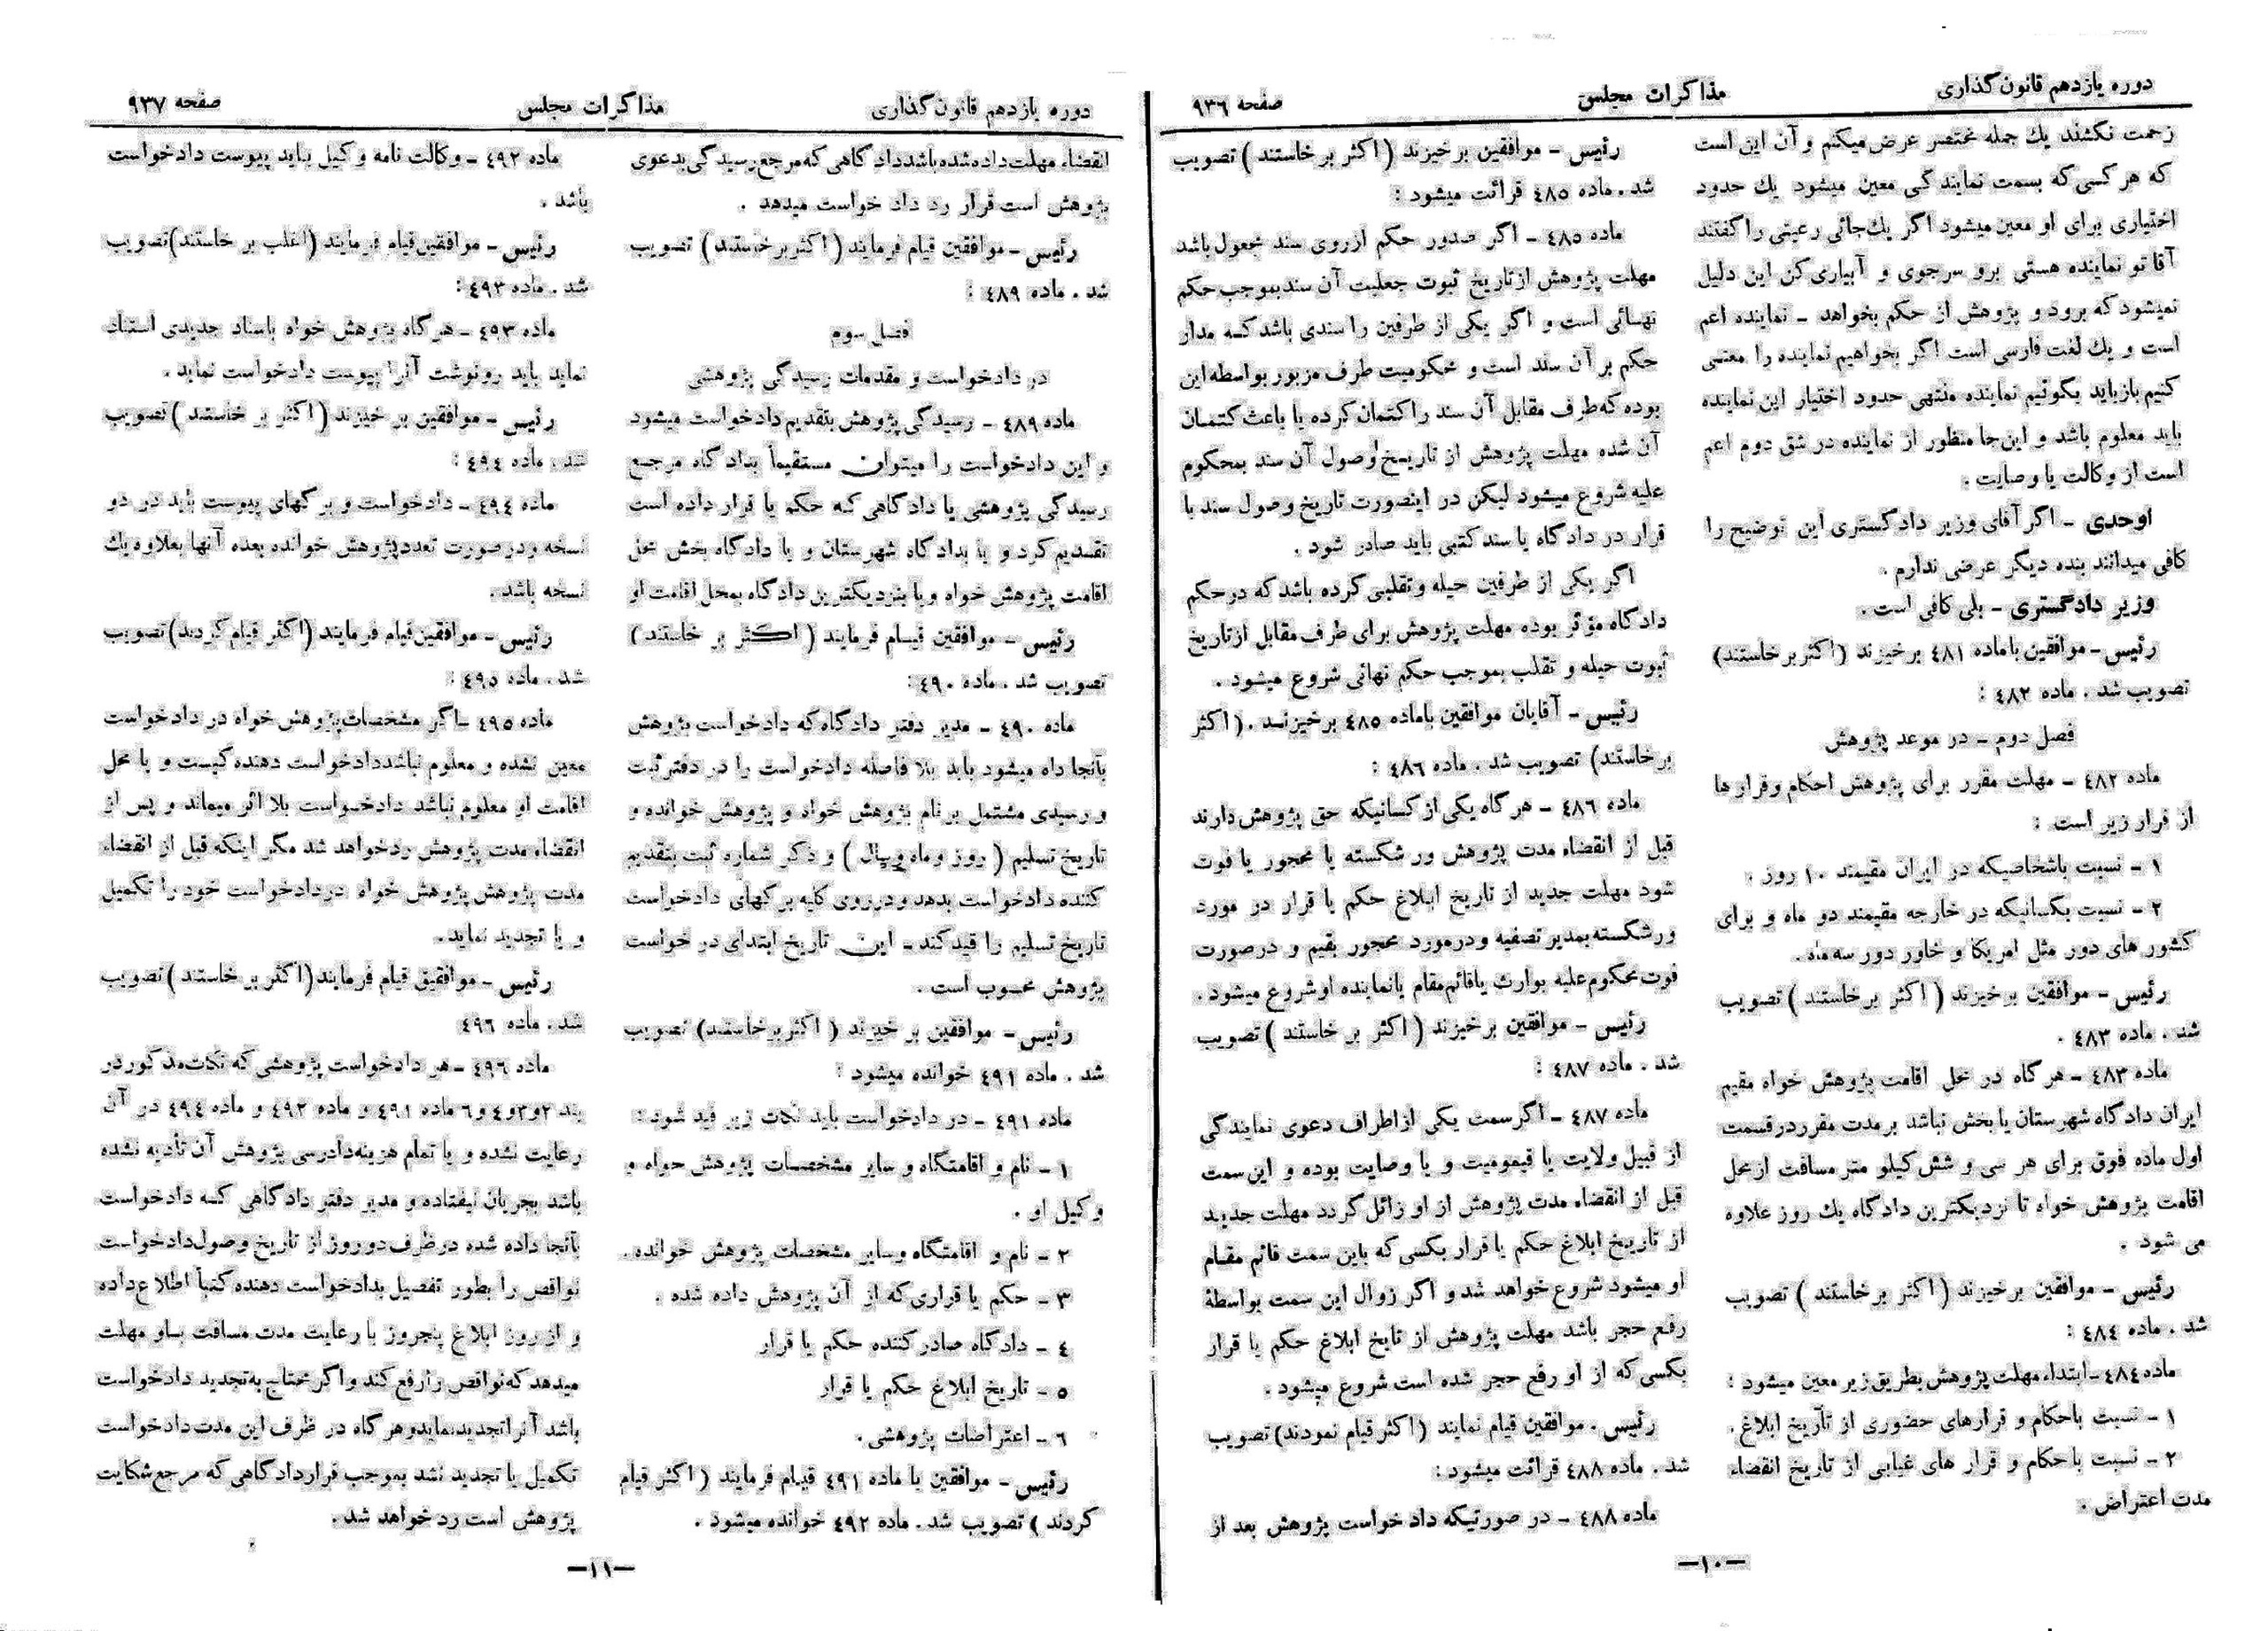 دوره یازدهم قانون‌گذاری
مذاکرات مجلس
صفحه ۹۳۶
زحمت نکشند یك جمله مختصر عرض میکنم و آن این است
که هر کسی که بسمت نمایندگی معین میشود یك حدود
اختیاری برای او معین میشود اگر یك جائی رعیتی را گفتند
آقا تو نماینده هستی برو سرجوی و آبیاری کن این دلیل
نمیشود که برود و پژوهش از حکم بخواهد ـ نماینده اعم
است و یك لغت فارسی است اگر بخواهیم نماینده را معنی
کنیم باز باید بگوئیم نماینده منتهی حدود اختیار این نماینده
باید معلوم باشد و این‌جا منظور از نماینده در شق دوم اعم
است از وکالت یا وصایت .
اوحدی ـ اگر آقای وزیر دادگستری این توضیح را
کافی میدانند بنده دیگر عرضی ندارم .
وزیر دادگستری ـ بلی کافی است .
رئیس ـ موافقین با ماده ٤٨١ برخیزند (اکثر برخاستند)
تصویب شد . ماده ٤٨٢ :
فصل دوم ـ در موعد پژوهش
ماده ٤٨٢ ـ مهلت مقرر برای پژوهش احکام و قرارها
از قرار زیر است :
١ ـ نسبت باشخاصیکه در ایران مقیمند ١٠ روز .
٢ ـ نسبت بکسانیکه در خارجه مقیمند دو ماه و برای
کشور های دور مثل امریکا و خاور دور سه ماه .
رئیس ـ موافقین برخیزند ( اکثر برخاستند ) تصویب
شد . ماده ٤٨٣ .
ماده ٤٨٣ ـ هر گاه در محل اقامت پژوهش خواه مقیم
ایران دادگاه شهرستان یا بخش نباشد بر مدت مقرر در قسمت
اول ماده فوق برای هر سی و شش کیلو متر مسافت از محل
اقامت پژوهش خواه تا نزدیکترین دادگاه یك روز علاوه
می شود .
رئیس ـ موافقین برخیزند (اکثر برخاستند ) تصویب
شد . ماده ٤٨٤ :
ماده ٤٨٤ ـ ابتداء مهلت پژوهش بطریق زیر معین میشود :
١ ـ نسبت باحکام و قرارهای حضوری از تاریخ ابلاغ .
٢ ـ نسبت باحکام و قرار های غیابی از تاریخ انقضاء
مدت اعتراض .
رئیس ـ موافقین برخیزند (اکثر برخاستند ) تصویب
شد . ماده ٤٨٥ قرائت میشود :
ماده ٤٨٥ ـ اگر صدور حکم از روی سند مجعول باشد
مهلت پژوهش از تاریخ ثبوت جعلیت آن سند بموجب حکم
نهائی است و اگر یکی از طرفین را سندی باشد که مدار
حکم بر آن سند است و محکومیت طرف مزبور بواسطه این
بوده که طرف مقابل آن سند را کتمان کرده یا باعث کتمان
آن شده مهلت پژوهش از تاریخ وصول آن سند بمحکوم
علیه شروع میشود لیکن در اینصورت تاریخ وصول سند با
قرار در دادگاه یا سند کتبی باید صادر شود .
اگر یکی از طرفین حیله و تقلبی کرده باشد که در حکم
دادگاه مؤثر بوده مهلت پژوهش برای طرف مقابل از تاریخ
ثبوت حیله و تقلب بموجب حکم نهائی شروع میشود .
رئیس ـ آقایان موافقین باماده ٤٨٥ برخیزند . (اکثر
برخاستند) تصویب شد . ماده ٤٨٦ :
ماده ٤٨٦ ـ هر گاه یکی از کسانیکه حق پژوهش دارند
قبل از انقضاء مدت پژوهش ور شکسته یا محجور یا فوت
شود مهلت جدید از تاریخ ابلاغ حکم یا قرار در مورد
ورشکسته بمدیر تصفیه و در مورد محجور بقیم و در صورت
فوت محکوم علیه بوارث یا قائم‌مقام یا نماینده او شروع میشود .
رئیس ـ موافقین برخیزند (اکثر بر خاستند ) تصویب
شد . ماده ٤٨٧ :
ماده ٤٨٧ ـ اگر سمت یکی از اطراف دعوی نمایندگی
از قبیل ولایت یا قیمومیت و یا وصایت بوده و این سمت
قبل از انقضاء مدت پژوهش از او زائل گردد مهلت جدید
از تاریخ ابلاغ حکم یا قرار بکسی که باین سمت قائم مقام
او میشود شروع خواهد شد و اگر زوال این سمت بواسطهٔ
رفع حجر باشد مهلت پژوهش از تایخ ابلاغ حکم یا قرار
بکسی که از او رفع حجر شده است شروع میشود .
رئیس . موافقین قیام نمایند (اکثر قیام نمودند) تصویب
شد . ماده ٤٨٨ قرائت میشود :
ماده ٤٨٨ ـ در صورتیکه داد خواست پژوهش بعد از
—١٠—
دوره یازدهم قانون‌گذاری
مذاکرات مجلس
صفحه ۹۳۷
انقضاء مهلت داده شده باشد دادگاهی که مرجع رسیدگی بدعوی
پژوهش است قرار رد داد خواست میدهد .
رئیس ـ موافقین قیام فرمایند (اکثر برخاستند) تصویب
شد . ماده ٤٨٩ :
فصل سوم
در دادخواست و مقدمات رسیدگی پژوهشی
ماده ٤٨٩ ـ رسیدگی پژوهش بتقدیم دادخواست میشود
و این دادخواست را میتوان مستقیماً بدادگاه مرجع
رسیدگی پژوهشی یا دادگاهی که حکم یا قرار داده است
تقدیم کرد و یا بدادگاه شهرستان و یا دادگاه بخش محل
اقامت پژوهش خواه و یا بنزدیکترین دادگاه بمحل اقامت او
رئیس ـ موافقین قیام فرمایند ( اکثر بر خاستند )
تصویب شد . ماده ٤٩٠ :
ماده ٤٩٠ ـ مدیر دفتر دادگاه که دادخواست پژوهش
بآنجا داه میشود باید بلا فاصله دادخواست را در دفتر ثبت
و رسیدی مشتمل بر نام پژوهش خواه و پژوهش خوانده و
تاریخ تسلیم ( روز و ماه و سال ) و ذکر شماره ثبت بتقدیم
کننده دادخواست بدهد و در روی کلیه برگهای دادخواست
تاریخ تسلیم را قید کند ـ این تاریخ ابتدای در خواست
پژوهش محسوب است .
رئیس ـ موافقین بر خیزند ( اکثر برخاستند) تصویب
شد . ماده ٤٩١ خوانده میشود :
ماده ٤٩١ ـ در دادخواست باید نکات زیر قید شود :
١ ـ نام و اقامتگاه و سایر مشخصات پژوهش خواه و
وکیل او .
٢ ـ نام و اقامتگاه وسایر مشخصات پژوهش خوانده .
٣ ـ حکم یا قراری که از آن پژوهش داده شده .
٤ ـ دادگاه صادر کننده حکم یا قرار
٥ ـ تاریخ ابلاغ حکم یا قرار
٦ ـ اعتراضات پژوهشی .
رئیس ـ موافقین با ماده ٤٩١ قیام فرمایند (اکثر قیام
کردند ) تصویب شد . ماده ٤٩٢ خوانده میشود .
ماده ٤٩٢ ـ وکالت نامه وکیل باید پیوست دادخواست
باشد .
رئیس ـ موافقین قیام فرمایند (اغلب بر خاستند) تصویب
شد . ماده ٤٩٣ :
ماده ٤٩٣ ـ هر گاه پژوهش خواه باسناد جدیدی استناد
نماید باید رونوشت آنرا پیوست دادخواست نماید .
رئیس ـ موافقین بر خیزند (اکثر بر خاستند ) تصویب
شد . ماده ٤٩٤ :
ماده ٤٩٤ ـ دادخواست و برگهای پیوست باید در دو
نسخه و در صورت تعدد پژوهش خوانده بعده آنها بعلاوه یك
نسخه باشد .
رئیس ـ موافقین قیام فرمایند (اکثر قیام کردند) تصویب
شد . ماده ٤٩٥ :
ماده ٤٩٥ ـ اگر مشخصات پژوهش خواه در دادخواست
معین نشده و معلوم نباشد دادخواست دهنده کیست و یا محل
اقامت او معلوم نباشد دادخواست بلا اثر میماند و پس از
انقضاء مدت پژوهش رد خواهد شد مگر اینکه قبل از انقضاء
مدت پژوهش پژوهش خواه در دادخواست خود را تکمیل
و یا تجدید نماید .
رئیس ـ موافقیق قیام فرمایند (اکثر بر خاستند ) تصویب
شد . ماده ٤٩٦
ماده ٤٩٦ ـ هر دادخواست پژوهشی که نکات مذکور در
بند ٢و٣و٤ و ٦ ماده ٤٩١ و ماده ٤٩٢ و ماده ٤٩٤ در آن
رعایت نشده و یا تمام هزینه دادرسی پژوهش آن تأدیه نشده
باشد بجریان نیفتاده و مدیر دفتر دادگاهی که دادخواست
بآنجا داده شده در ظرف دو روز از تاریخ وصول دادخواست
نواقص را بطور تفصیل بدادخواست دهنده کتباً اطلاع داده
و از روز ابلاغ پنجروز با رعایت مدت مسافت باو مهلت
میدهد که نواقص را رفع کند و اگر محتاج به تجدید دادخواست
باشد آنرا تجدید نماید و هر گاه در ظرف این مدت دادخواست
تکمیل یا تجدید نشد بموجب قرار دادگاهی که مرجع شکایت
پژوهش است رد خواهد شد .
—١١—